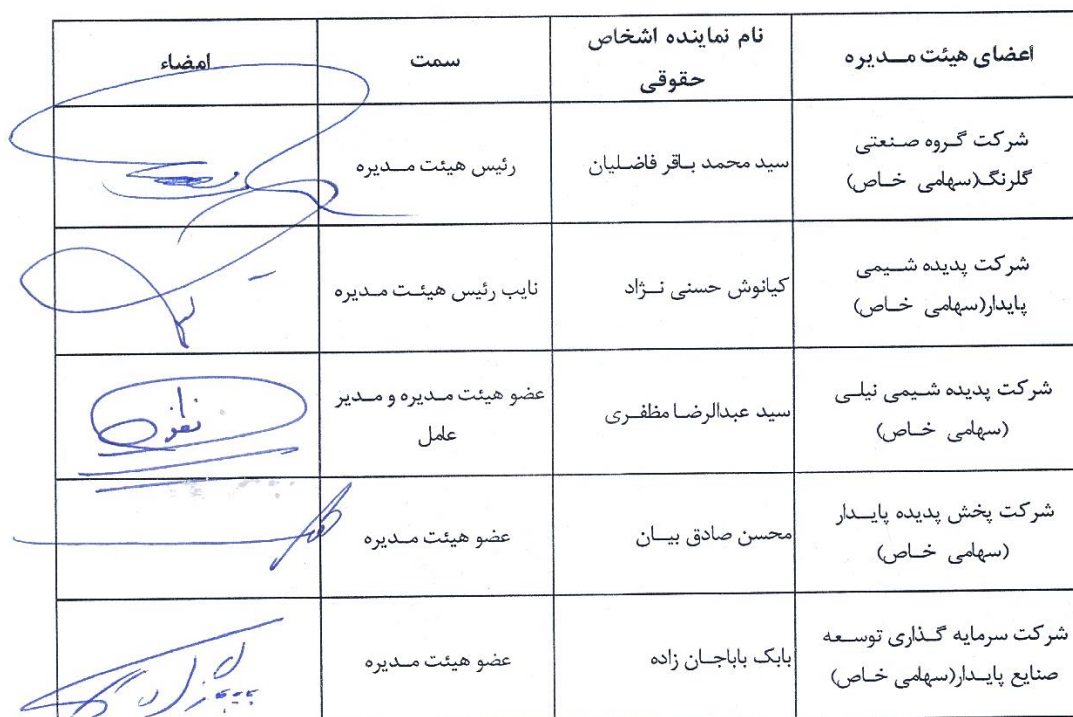 اعضای هیئت مدیره
نام نماینده اشخاص
حقوقی
سمت
امضاء
شرکت گروه صنعتی
گلرنگ(سهامی خاص)
سید محمد باقر فاضلیان
رئیس هیئت مدیره
شرکت پدیده شیمی
پایدار(سهامی خاص)
کیانوش حسنی نژاد
نایب رئیس هیئت مدیره
شرکت پدیده شیمی نیلی
(سهامی خاص)
سید عبدالرضا مظفری
عضو هیئت مدیره و مدیر
عامل
شرکت پخش پدیده پایدار
(سهامی خاص)
محسن صادق بیان
عضو هیئت مدیره
شرکت سرمایه گذاری توسعه
صنایع پایدار(سهامی خاص)
بابک باباجان زاده
عضو هیئت مدیره